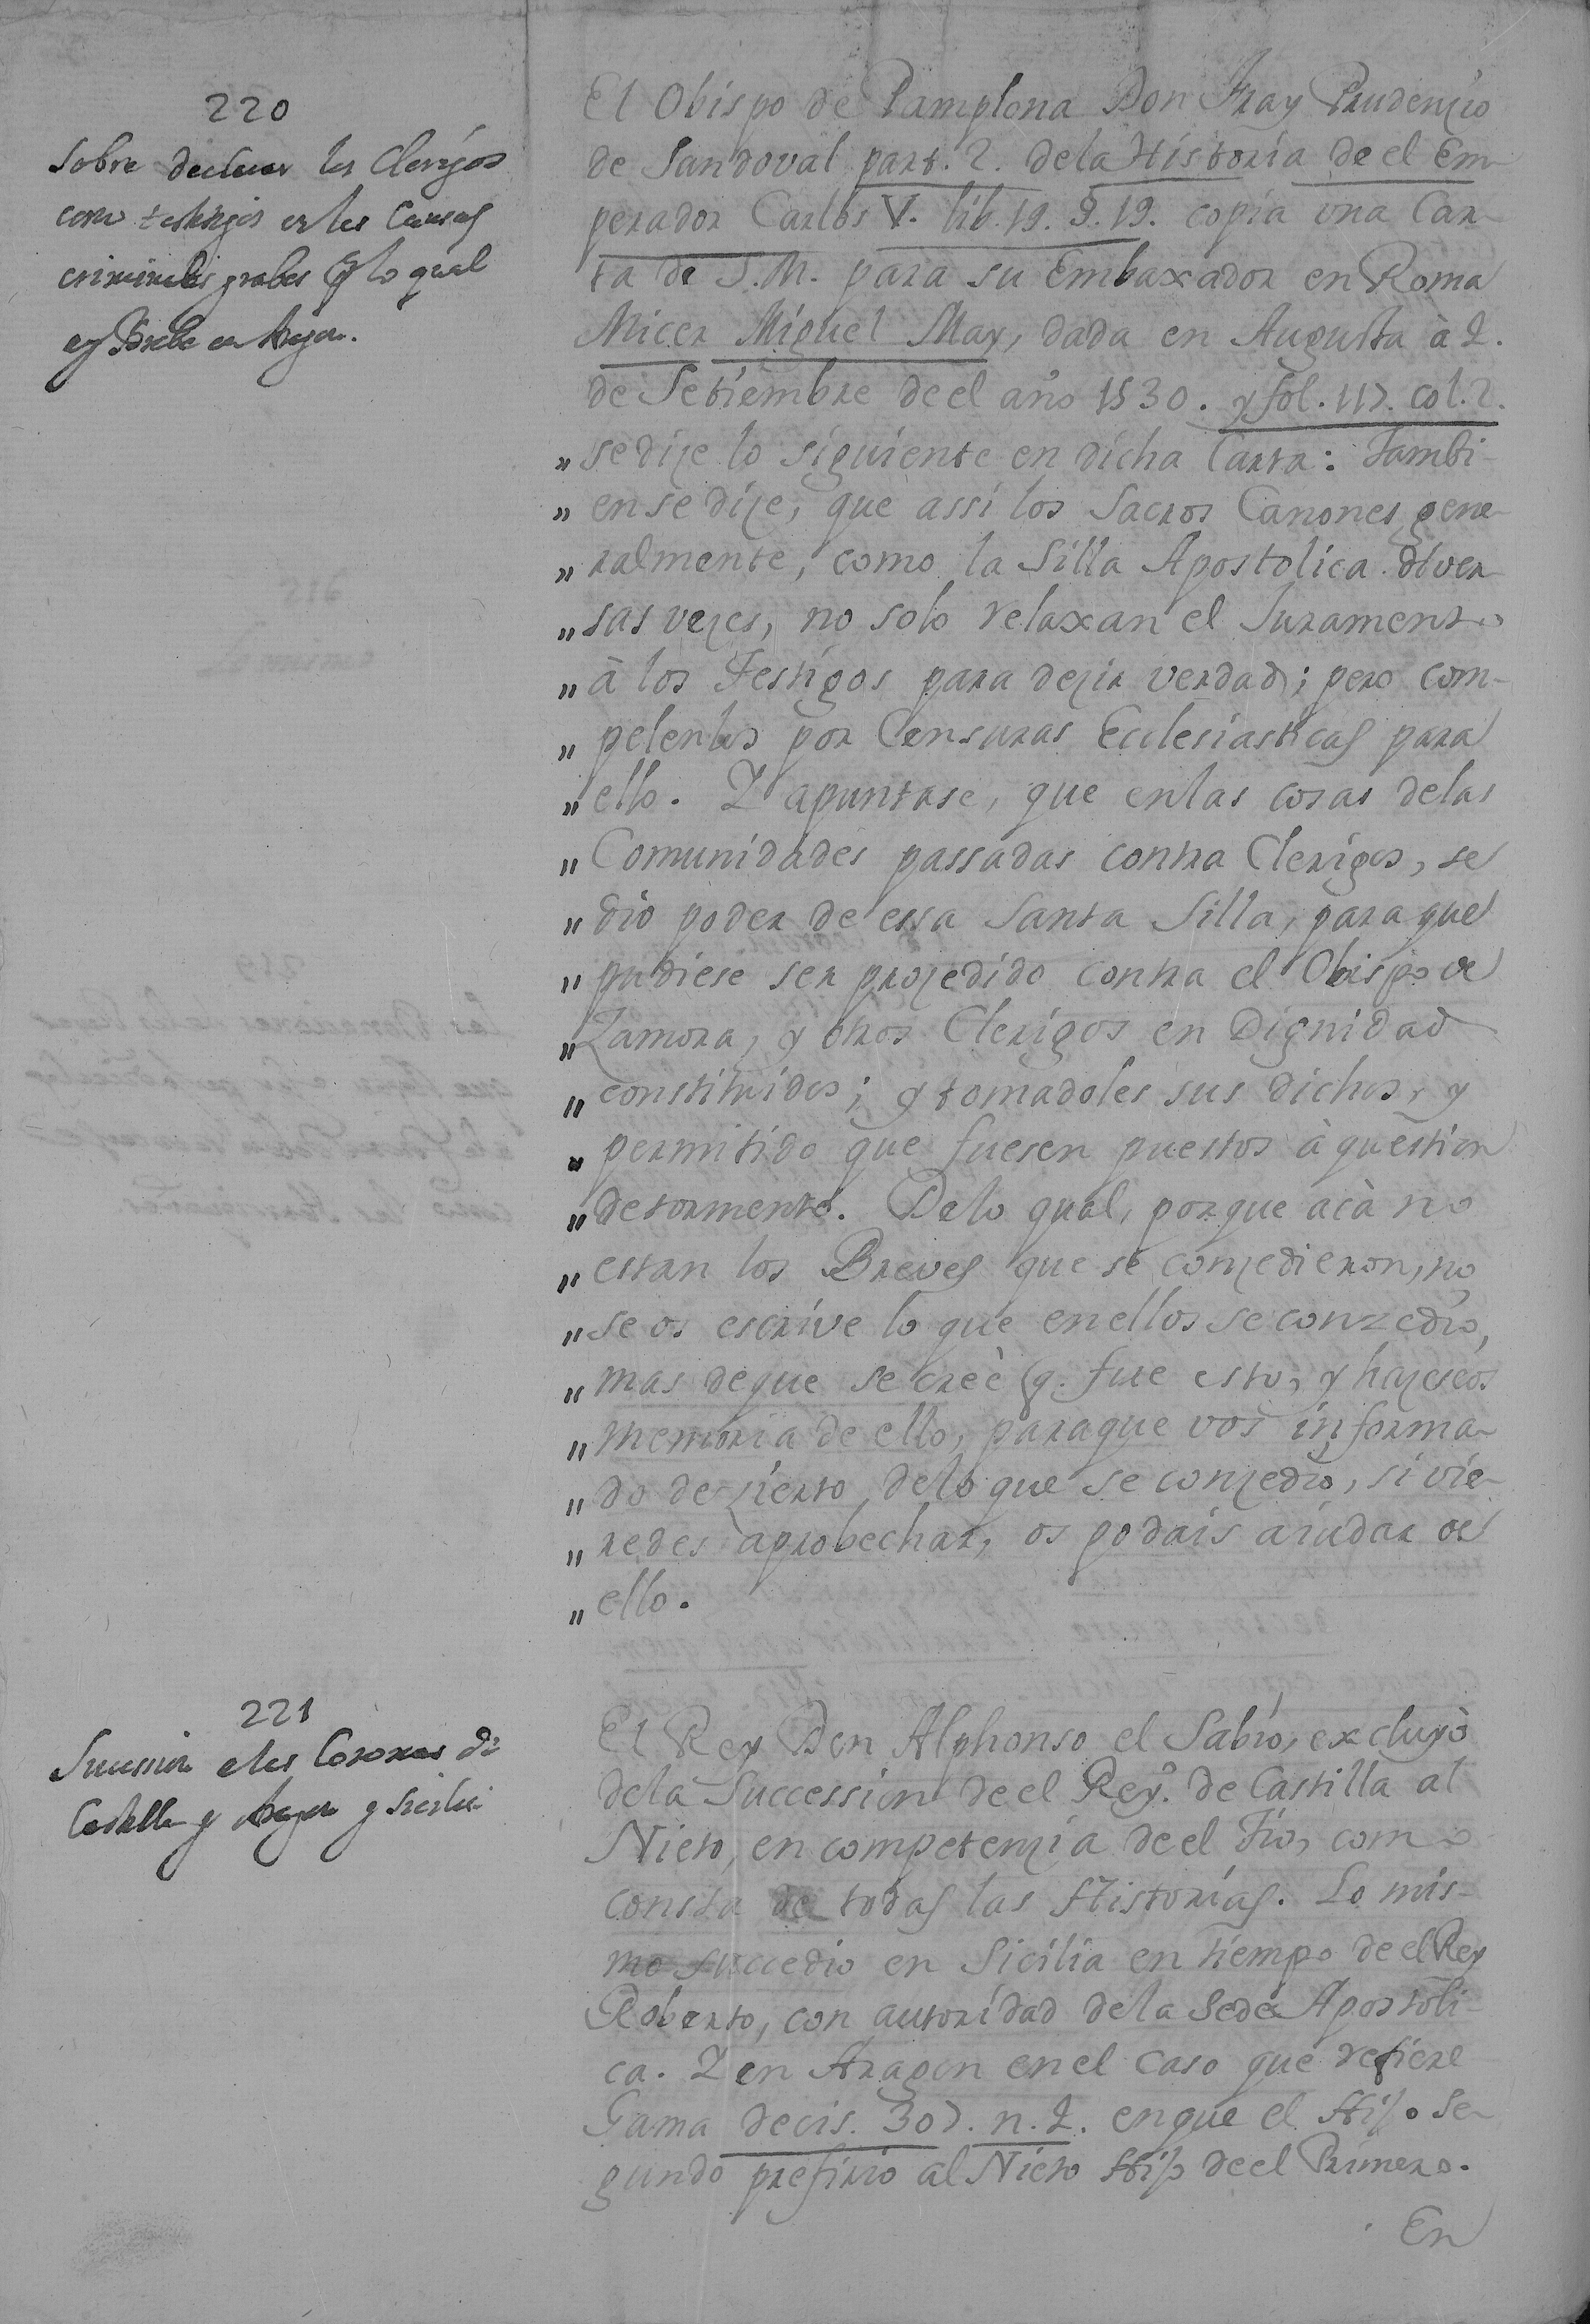 220
Sobre declarar los Clerigos
como testigos en las Causas
criminales grabes q lo qual
ay Brebe en Aragon.
El Obispo de Pamplona Don Fray Prudenzio
de Sandoval part. 2. dela Historia de el Em-
perador Carlos V. lib. 19. §. 19. copia una Car-
ta de S.M. para su Embaxador en Roma
Micer Miguel May, dada en Augusta à 2.
de Setiembre de el año 1530. y fol. 117. col. 2.
„ se dize lo siguiente en dicha Carta: Tambi-
„ en se dize, que assi los Sacros Canones gene-
„ ralmente, como la Silla Apostolica diver-
„ sas vezes, no solo relaxan el Juramento
„ à los Testigos para dezir verdad; pero com-
„ pelenlos por Censuras Ecclesiasticas para
„ ello. Y apuntase, que enlas cosas delas
„ Comunidades passadas contra Clerigos, se
„ dio poder de essa Santa Silla, para que
„ pudiese ser prozedido contra el Obispo de
„ Zamora, y otros Clerigos en Dignidad
„ constituidos; y tomadoles sus dichos, y
„ permitido que fuesen puestos à question
„ detormento. Delo qual, porque acà no
„ estan los Breves que se conzedieron, no
„ se os escrive lo que enellos se conzedio,
„ mas deque se creè q. fue esto, y hazeseos
„ memoria de ello, paraque vos informa-
„ do de zierto delo que se conzedio, si vie-
„ redes aprobechar, os podais aiudar de
„ ello.
221
Sucession de las Coronas de
Castilla y Aragon y Sicilia
El Rey Don Alphonso el Sabio, excluyò
dela Succession de el Reyº. de Castilla al
Nieto, en competenzia de el Tio, como
consta de todas las Historias. Lo mis-
mo succedio en Sicilia en tiempo de el Rey
Roberto, con autoridad dela Sede Apostoli-
ca. Y en Aragon enel caso que refiere
Gama decis. 307. n. 2. enque el Hijo Se-
gundo prefirio al Nieto Hijo de el Primero.
En